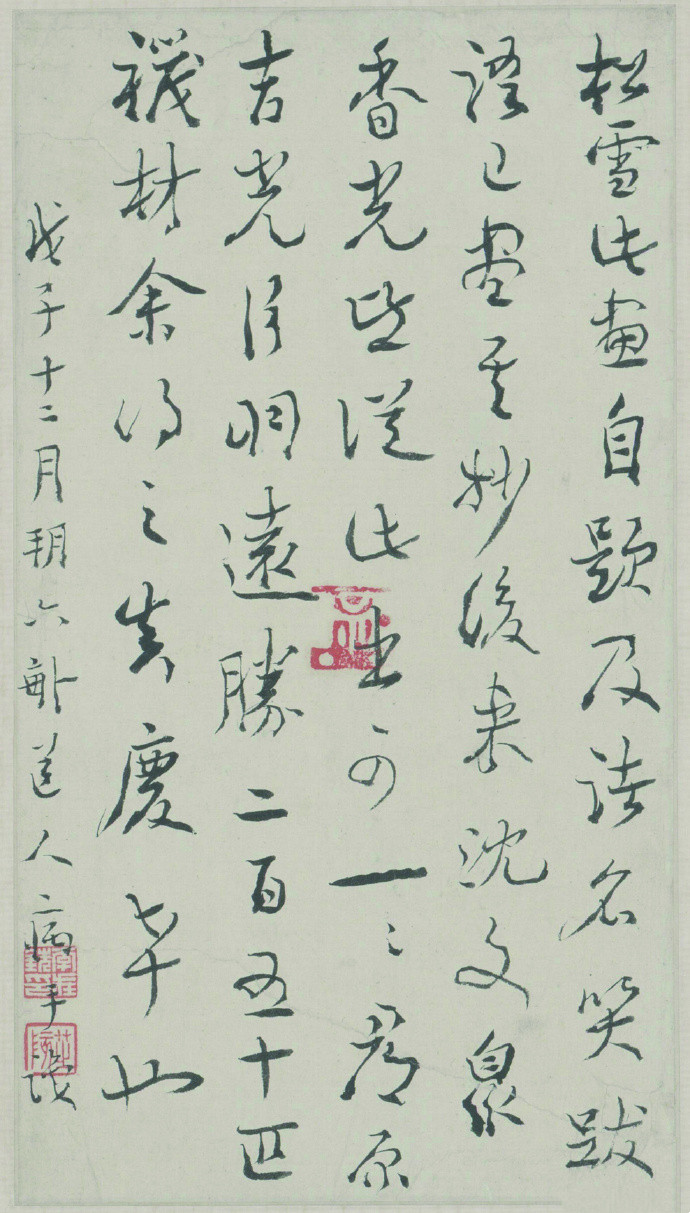 松雪此畫自題及諸名跋
語已盡其妙後来沈文臮
香光皆從此出可一一尋原
吉光片羽遠勝二百五十匹
襪材余得之真慶幸也
戊子十二月朔六道人病手識